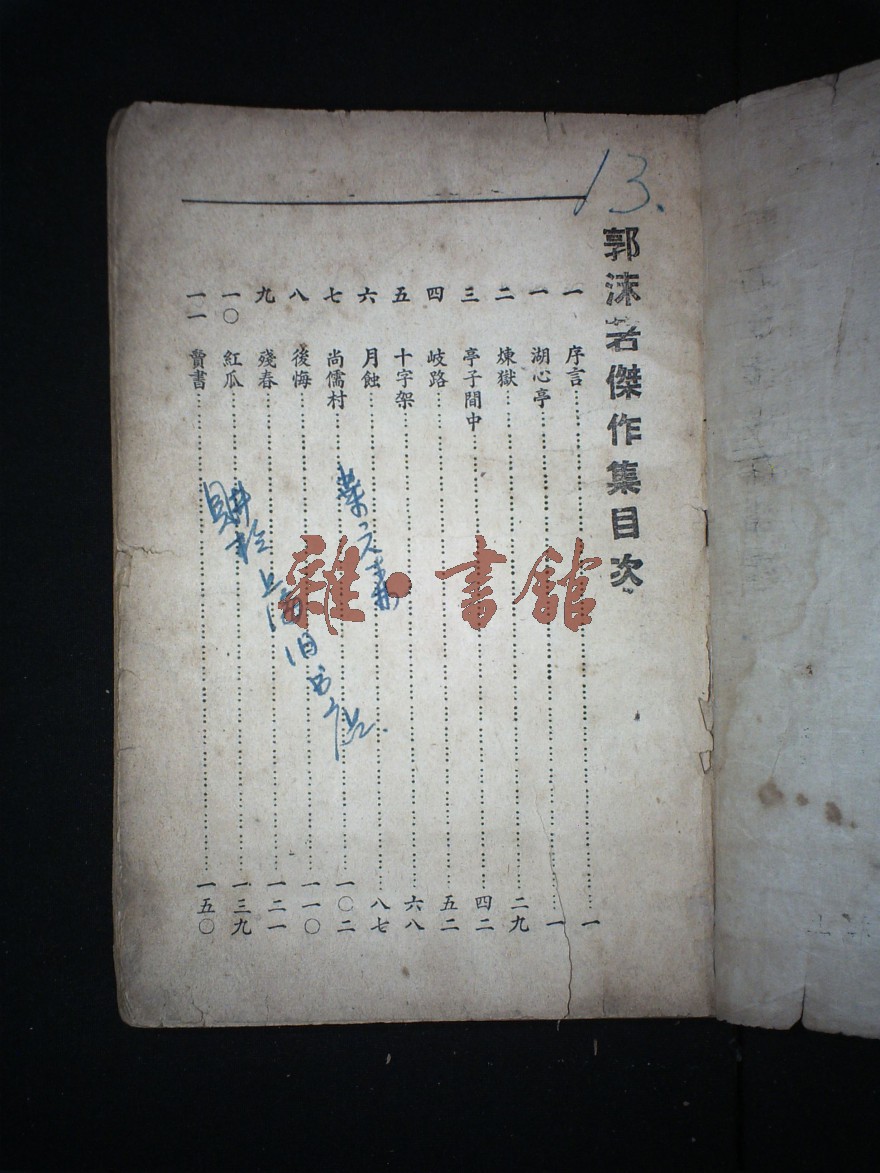 13.
郭沫若傑作集目次
一 序言……一
一 湖心亭……一
二 煉獄……二九
三 亭子間中……四二
四 岐路……五二
五 十字架……六八
六 月蝕……八七
七 尚儒村……一〇二
八 後悔……一一〇
九 殘春……一二一
一〇 紅瓜……一三九
一一 賣書……一五〇
購於上海旧书店
雜·書館